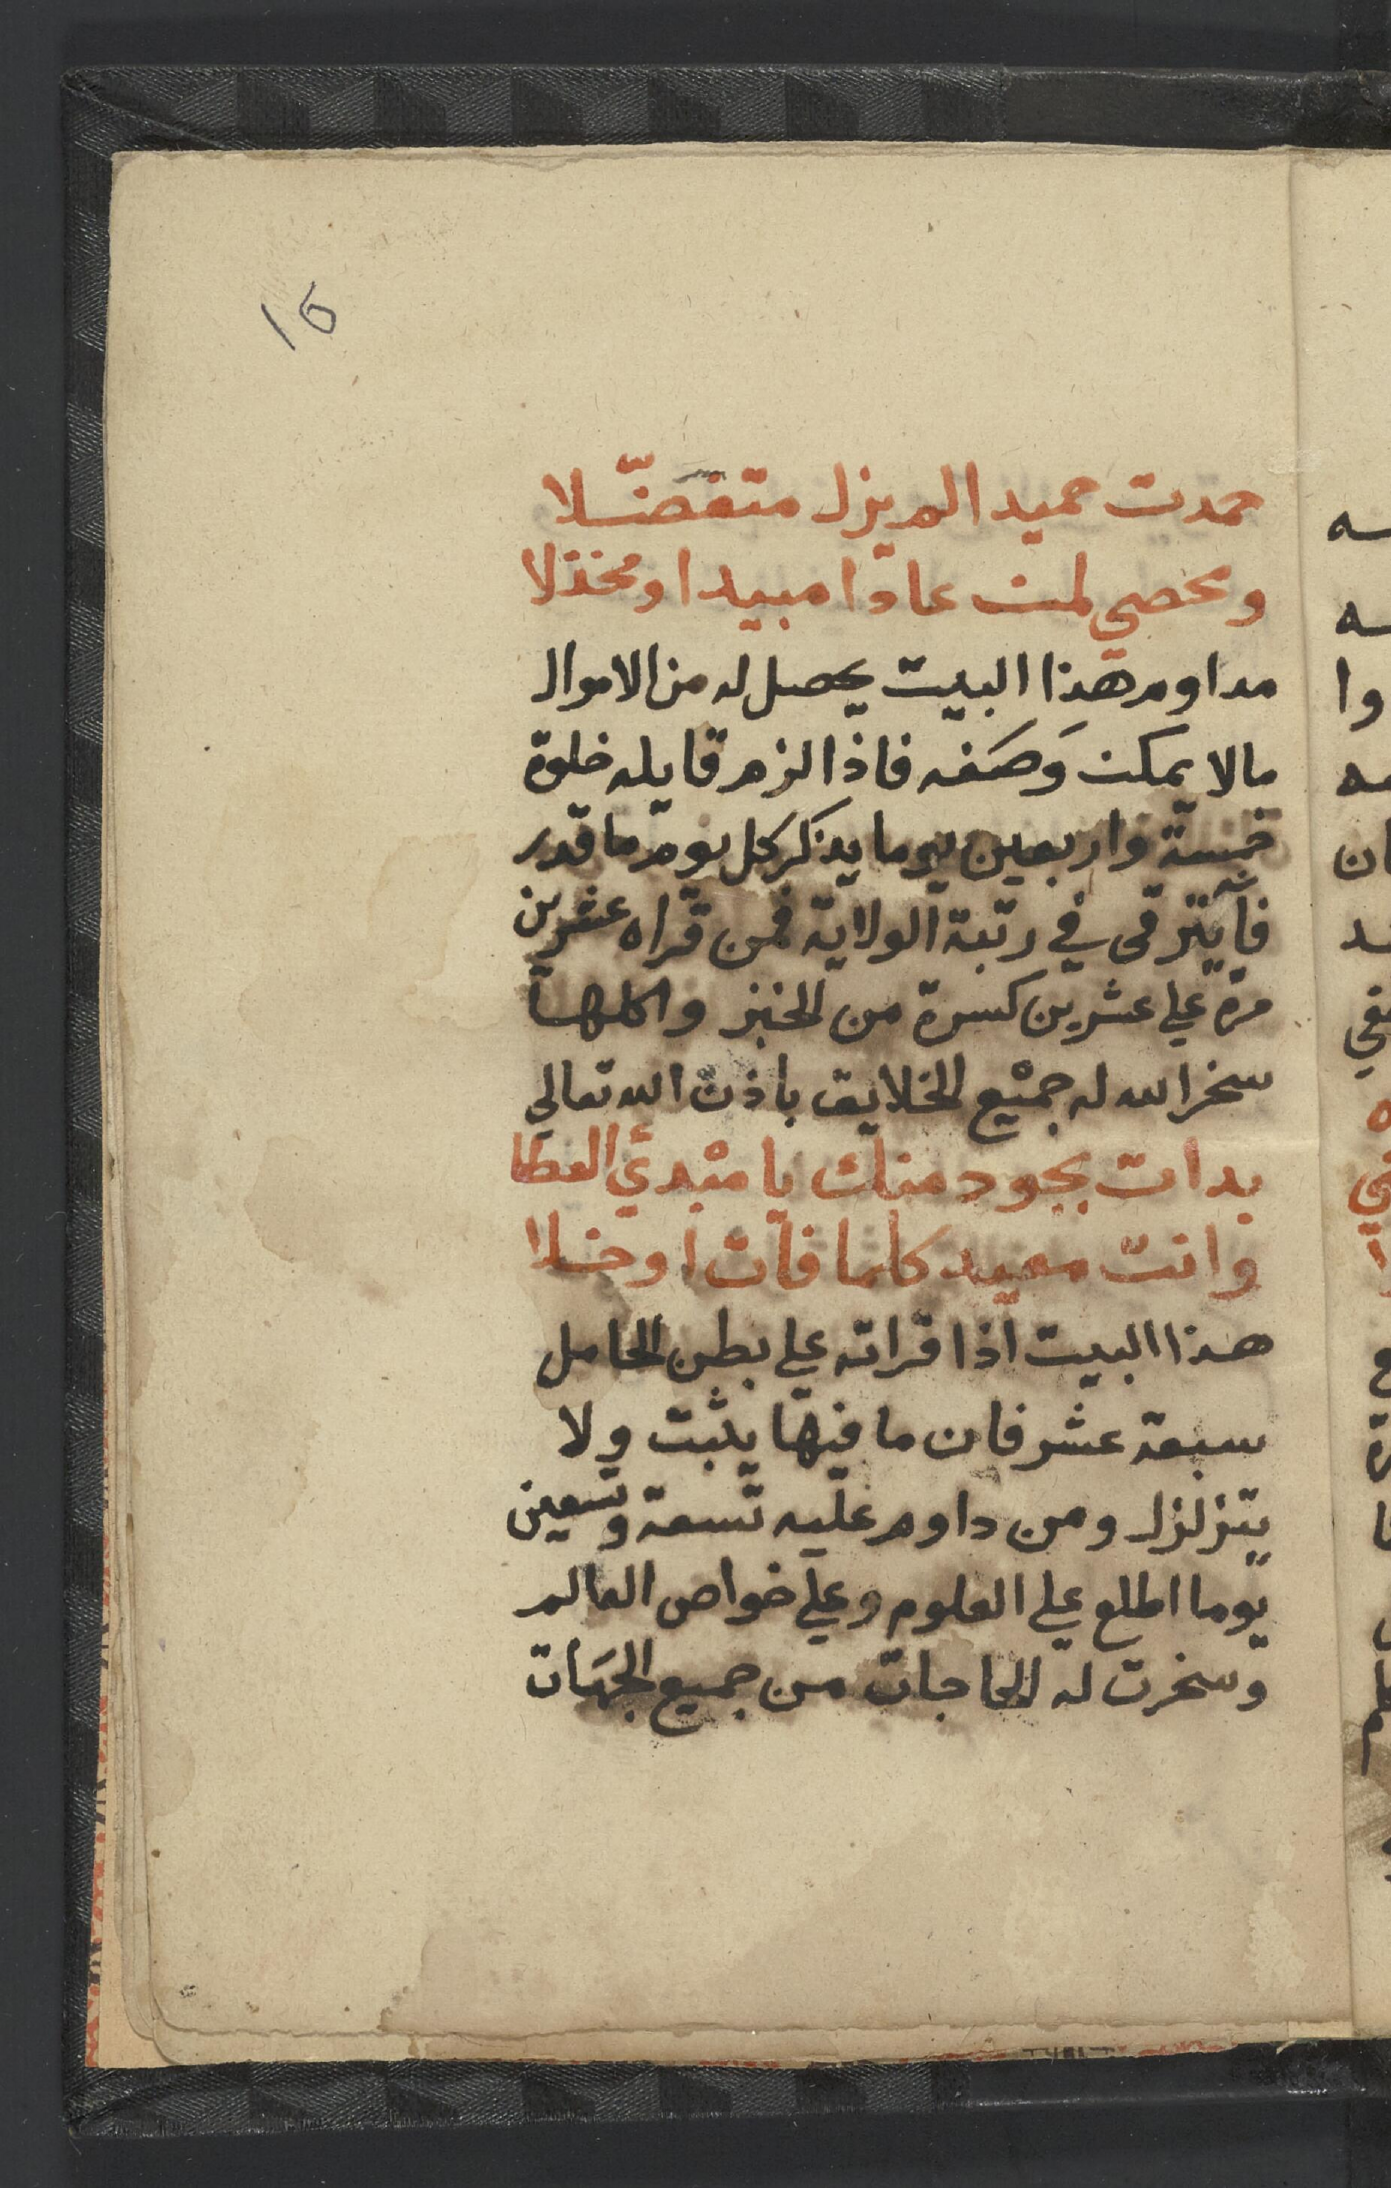 16
حمدت حميدا لم يزل متفضّلا
ومحصي لمن عادا مبيدا ومخذلا
مداوم هذا البيت يحصل له من الاموال
مالا يمكن وَصَفه فاذا الزم قايله خلوة
خمسة واربعين يوما يذكر كل يوم ما قدر
فآيترقى في رتبة الولاية فمن قراه عشرين
مرة علي عشرين كسرة من الخبز واكلها
سخر الله له جميع الخلايق باذن الله تعالي
بدات بجود منك يا مبدئ العطا
وانت معيد كلما فات او خلا
هذا البيت اذا قراته علي بطن الحامل
سبعة عشر فان ما فيها يثبت ولا
يتزلزل ومن داوم عليه تسعة وتسعين
يوما اطلع علي العلوم وعلي خواص العالم
وسخرت له الحاجات من جميع الجهَات